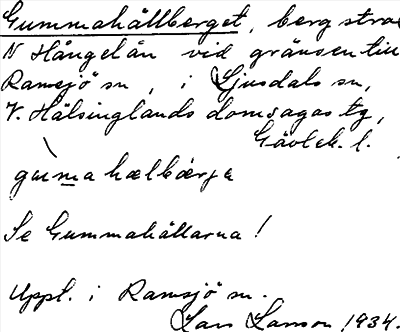 Gummahällberget, berg strax
N Hångelån vid gränsen till
Ramsjö sn, i Ljusdals sn,
V. Hälsinglands domsagas tg,
Gävleb. l.
gumahælbærje
Se Gummahällarna!
Uppt. i Ramsjö sn.
Lars Larson 1934.